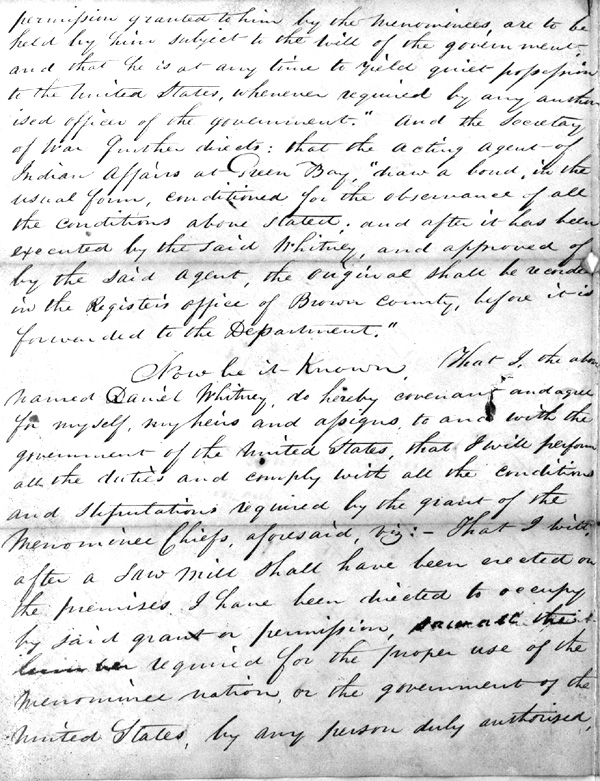 permission granted to him by the Menominees, are to be
held by him subject to the will of the government
and that he is at any time to yield quiet possession
to the United States, whenever required by any author
ised officer of the government." And the Secretary
of War further directs: that the acting agent of
Indian Affairs at Green Bay, "draw a bond, in the
usual form, conditioned for the observance of all
the conditions above stated; and after it has been
executed by the said Whitney, and approved of
by the said agent, the original shall be recorded
in the Register's office of Brown County, before it is
forwarded to the Department."
Now be it Known, That I, the above
named Daniel Whitney, do hereby covenant and agree
for myself, my heirs and assigns, to and with the
government of the United States, that I will perform
all the duties and comply with all the conditions
and stipulations required by the grant of the
Menominee Chiefs, aforesaid, viz: - That I will,
after a Saw Mill shall have been erected on
the premises I have been directed to occupy
by said grant or permission, saw all the
lumber required for the proper use of the
Menominee nation, or the government of the
United States, by any person duly authorised,